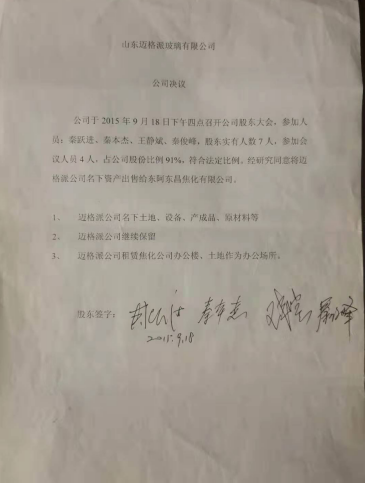 山东迈格派玻璃有限公司
公司决议
公司于 2015 年 9 月 18 日下午四点召开公司股东大会，参加人
员：秦跃进、秦本杰、王静斌、秦俊峰，股东实有人数 7 人，参加会
议人员 4 人，占公司股份比例 91%，符合法定比例。经研究同意将迈
格派公司名下资产出售给东阿东昌焦化有限公司。
1、 迈格派公司名下土地、设备、产成品、原材料等
2、 迈格派公司继续保留
3、 迈格派公司租赁焦化公司办公楼、土地作为办公场所。
股东签字： 秦本杰
2015.9.18